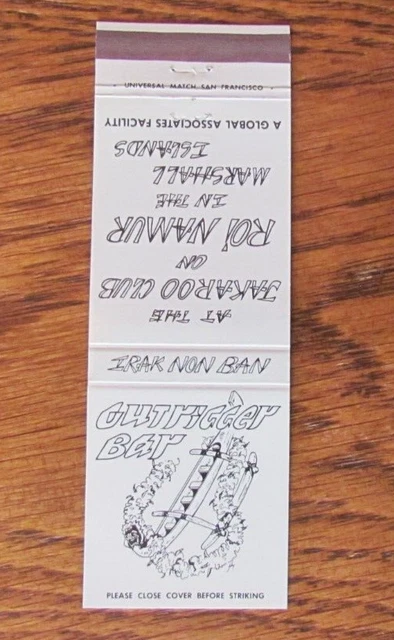 • UNIVERSAL MATCH, SAN FRANCISCO •
A GLOBAL ASSOCIATES FACILITY
AT THE
JAKAROO CLUB
ON
ROI NAMUR
IN THE
MARSHALL
ISLANDS
IRAK NON BAN
OUTRIGGER
BAR
PLEASE CLOSE COVER BEFORE STRIKING